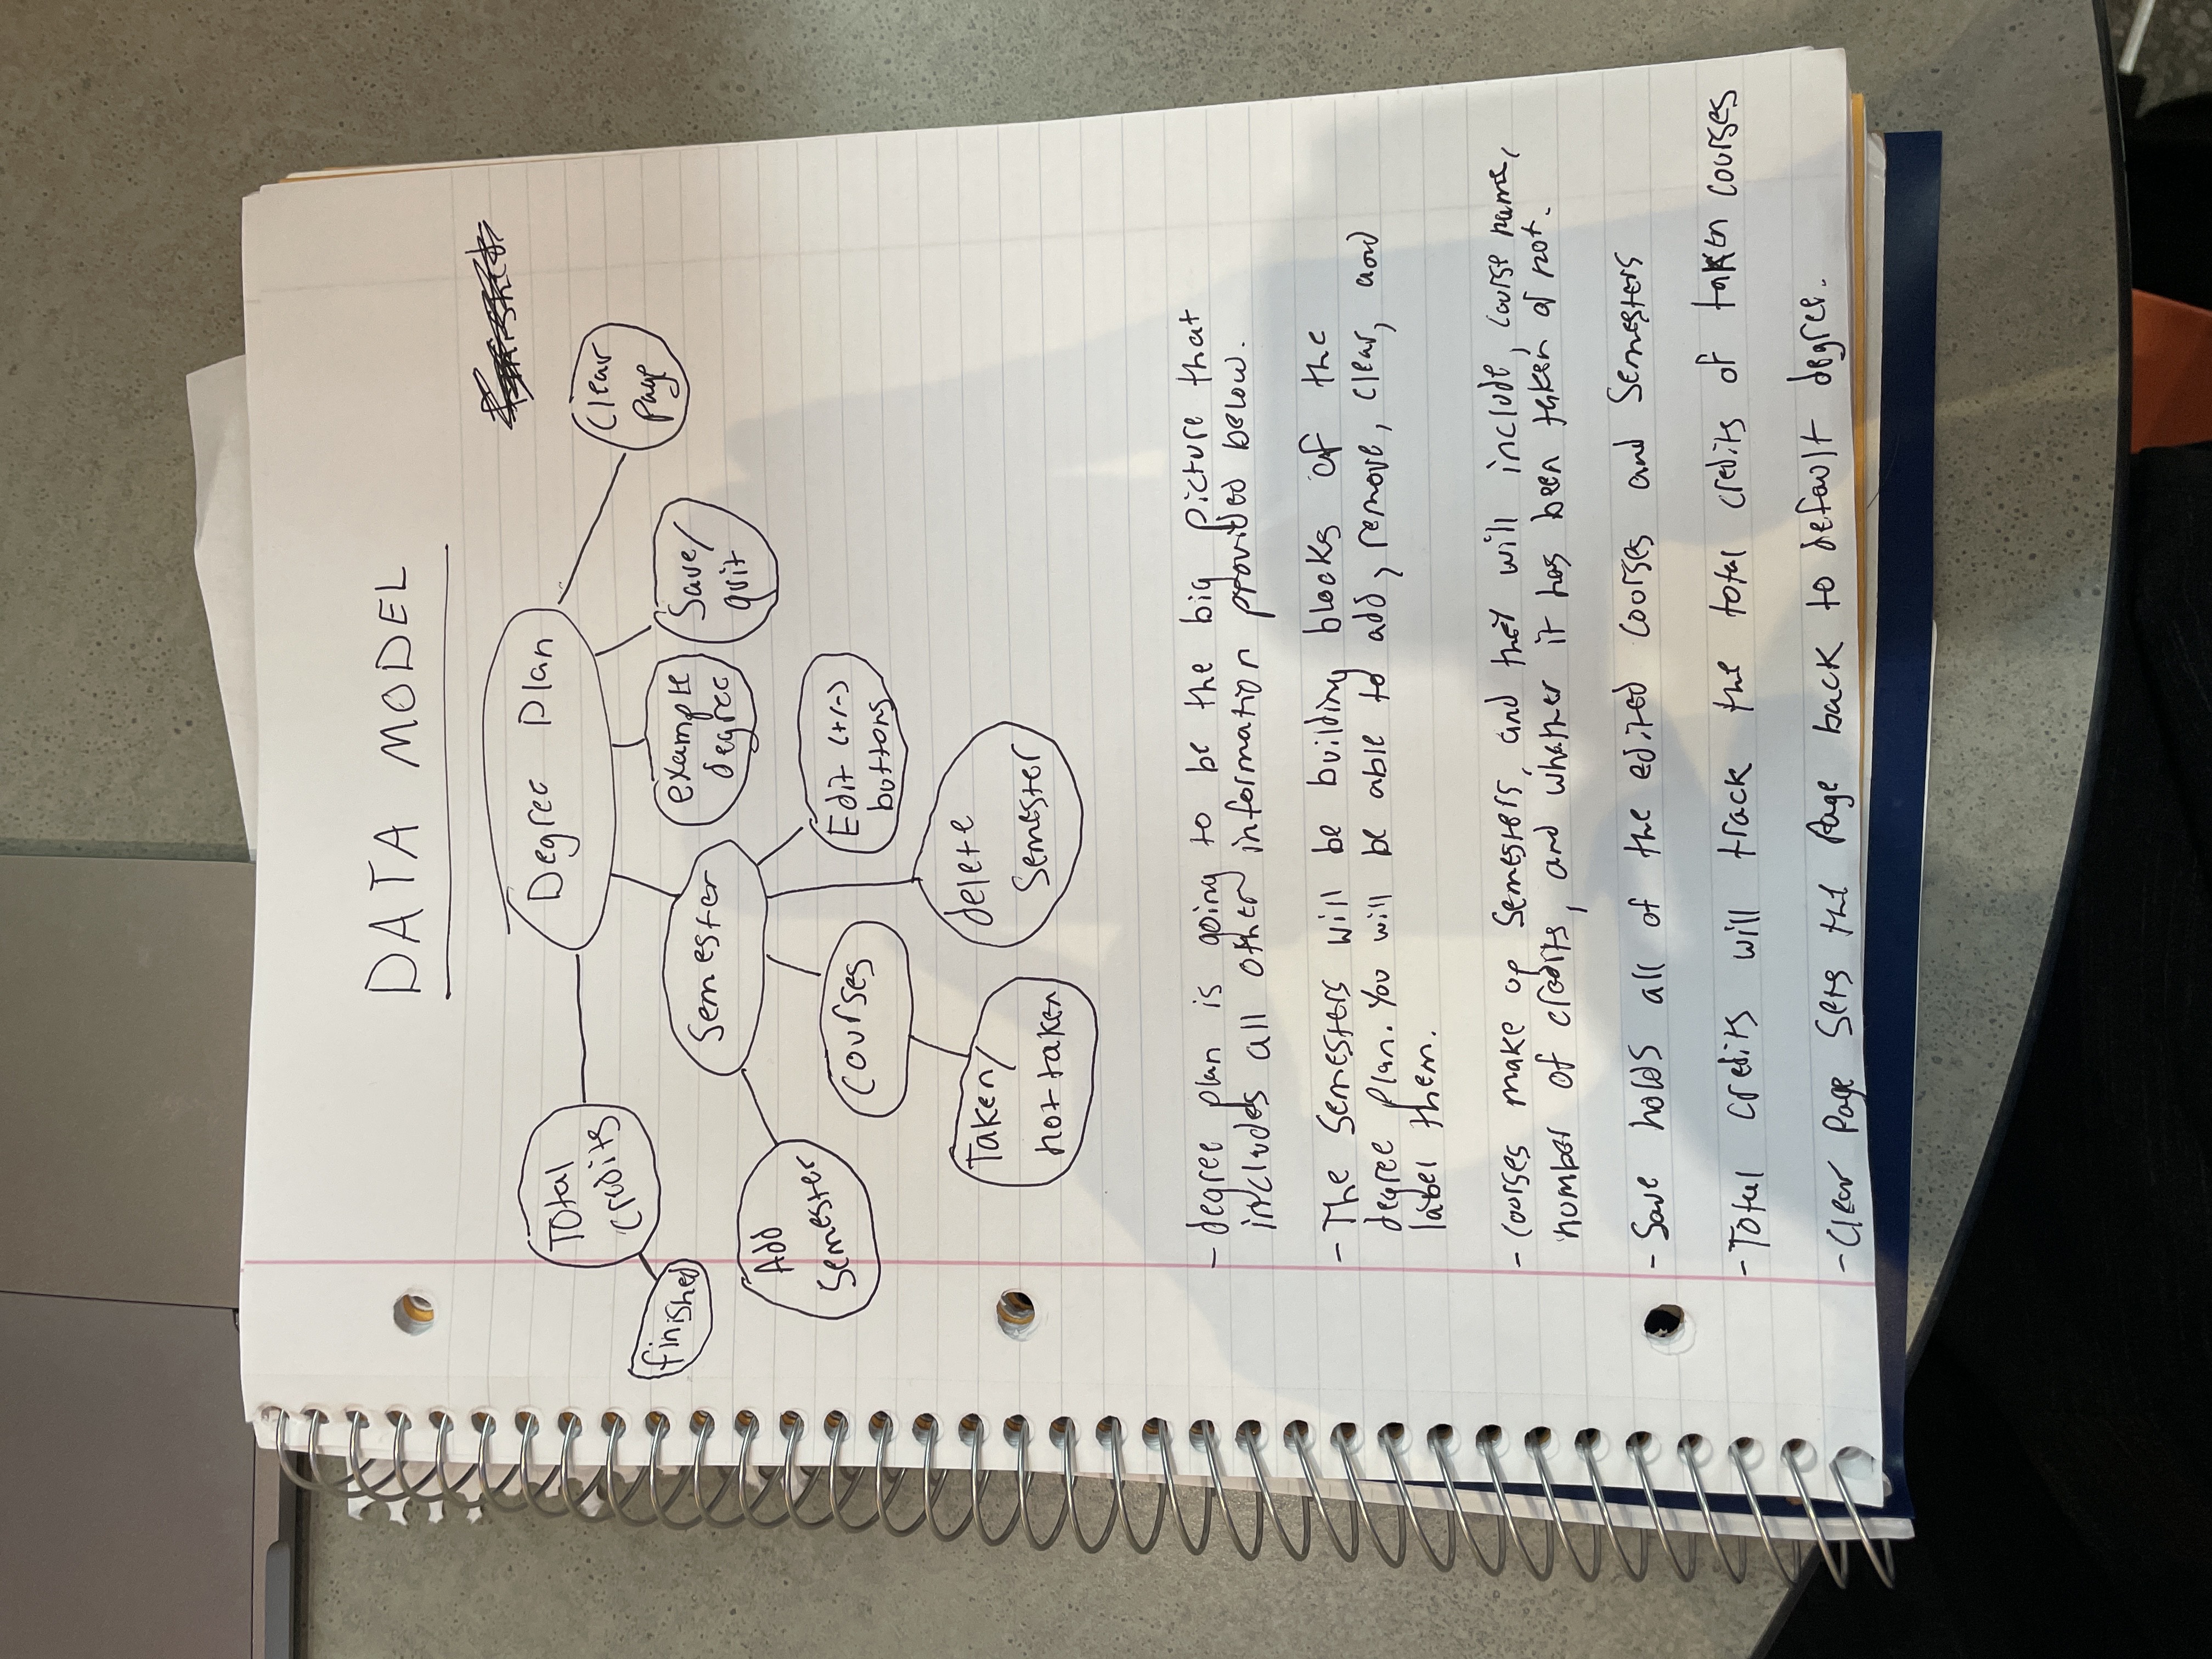 DATA MODEL
Degree Plan
Total
credits
finished
Clear
page
Semester
example
degree
Save/
quit
Add
Semester
courses
Edit (+/-)
buttons
Taken/
not taken
delete
Semester
- degree plan is going to be the big picture that
includes all other information provided below.
- The Semesters will be building blocks of the
degree plan. You will be able to add, remove, clear, and
label them.
- Courses make up Semesters, and they will include, course name,
number of credits, and whether it has been taken or not.
- Save holds all of the edited courses and Semesters
- Total credits will track the total credits of taken courses
- Clear Page Sets the Page back to default degree.